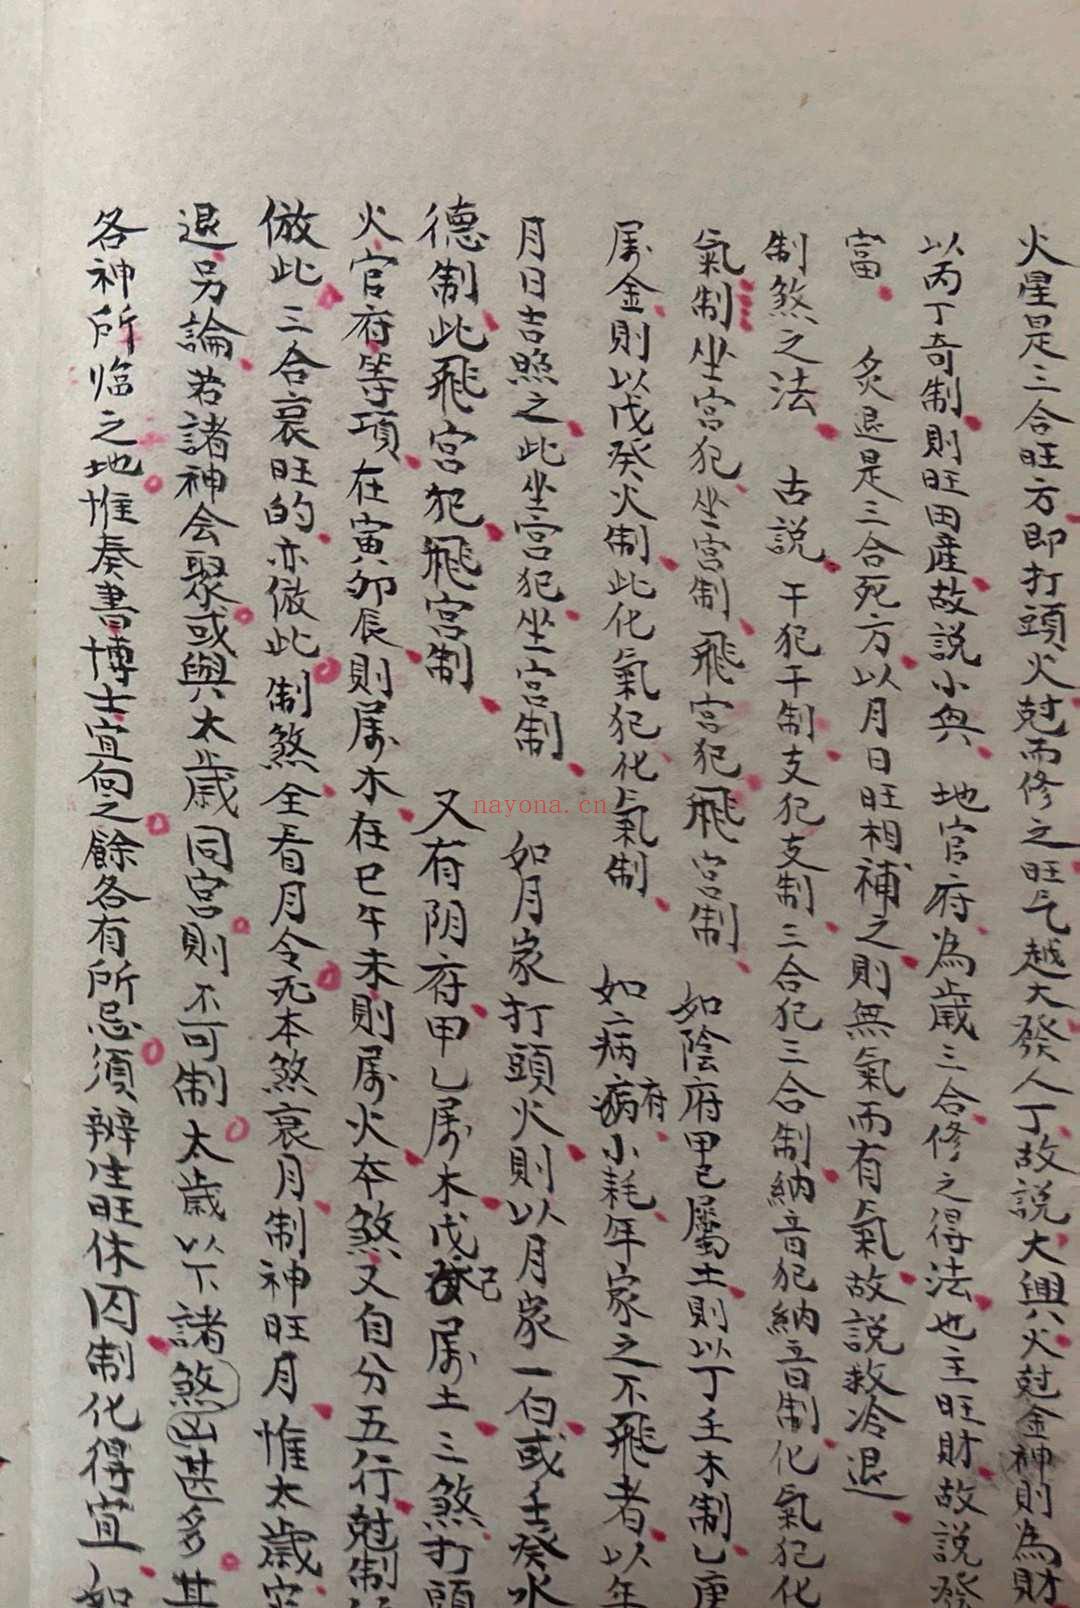 火星是三合旺方即打頭火尅而修之旺气越大發人丁故説大興火尅金神則為財
以丙丁奇制則旺田產故説小興 地官府為歲三合修之得法也主旺財故説發
富 炙退是三合死方以月日旺相補之則無氣而有氣故説救冷退
制煞之法 古説 干犯干制支犯支制三合犯三合制納音犯納音制化氣犯化
氣制坐宮犯坐宮制飛宮犯飛宮制 如陰府甲己屬土則以丁壬木制乙庚
属金則以戊癸火制此化氣犯化氣制 如病府小耗年家之不飛者以年
月日吉照之此坐宮犯坐宮制 如月家打頭火則以月家一白或壬癸水
德制此飛宮犯飛宮制 又有阴府甲乙属木戊己属土三煞打頭
火官府等項在寅卯辰則属木在巳午未則属火本煞又自分五行尅制
倣此三合衰旺的亦倣此制煞全看月令死本煞衰月制神旺月惟太歲
退另論若諸神会聚或與太歲同宮則不可制太歲以下諸煞凶甚多其
各神所臨之地惟奏書博士宜向之餘各有所忌須辨生旺休囚制化得宜如
nayona.cn